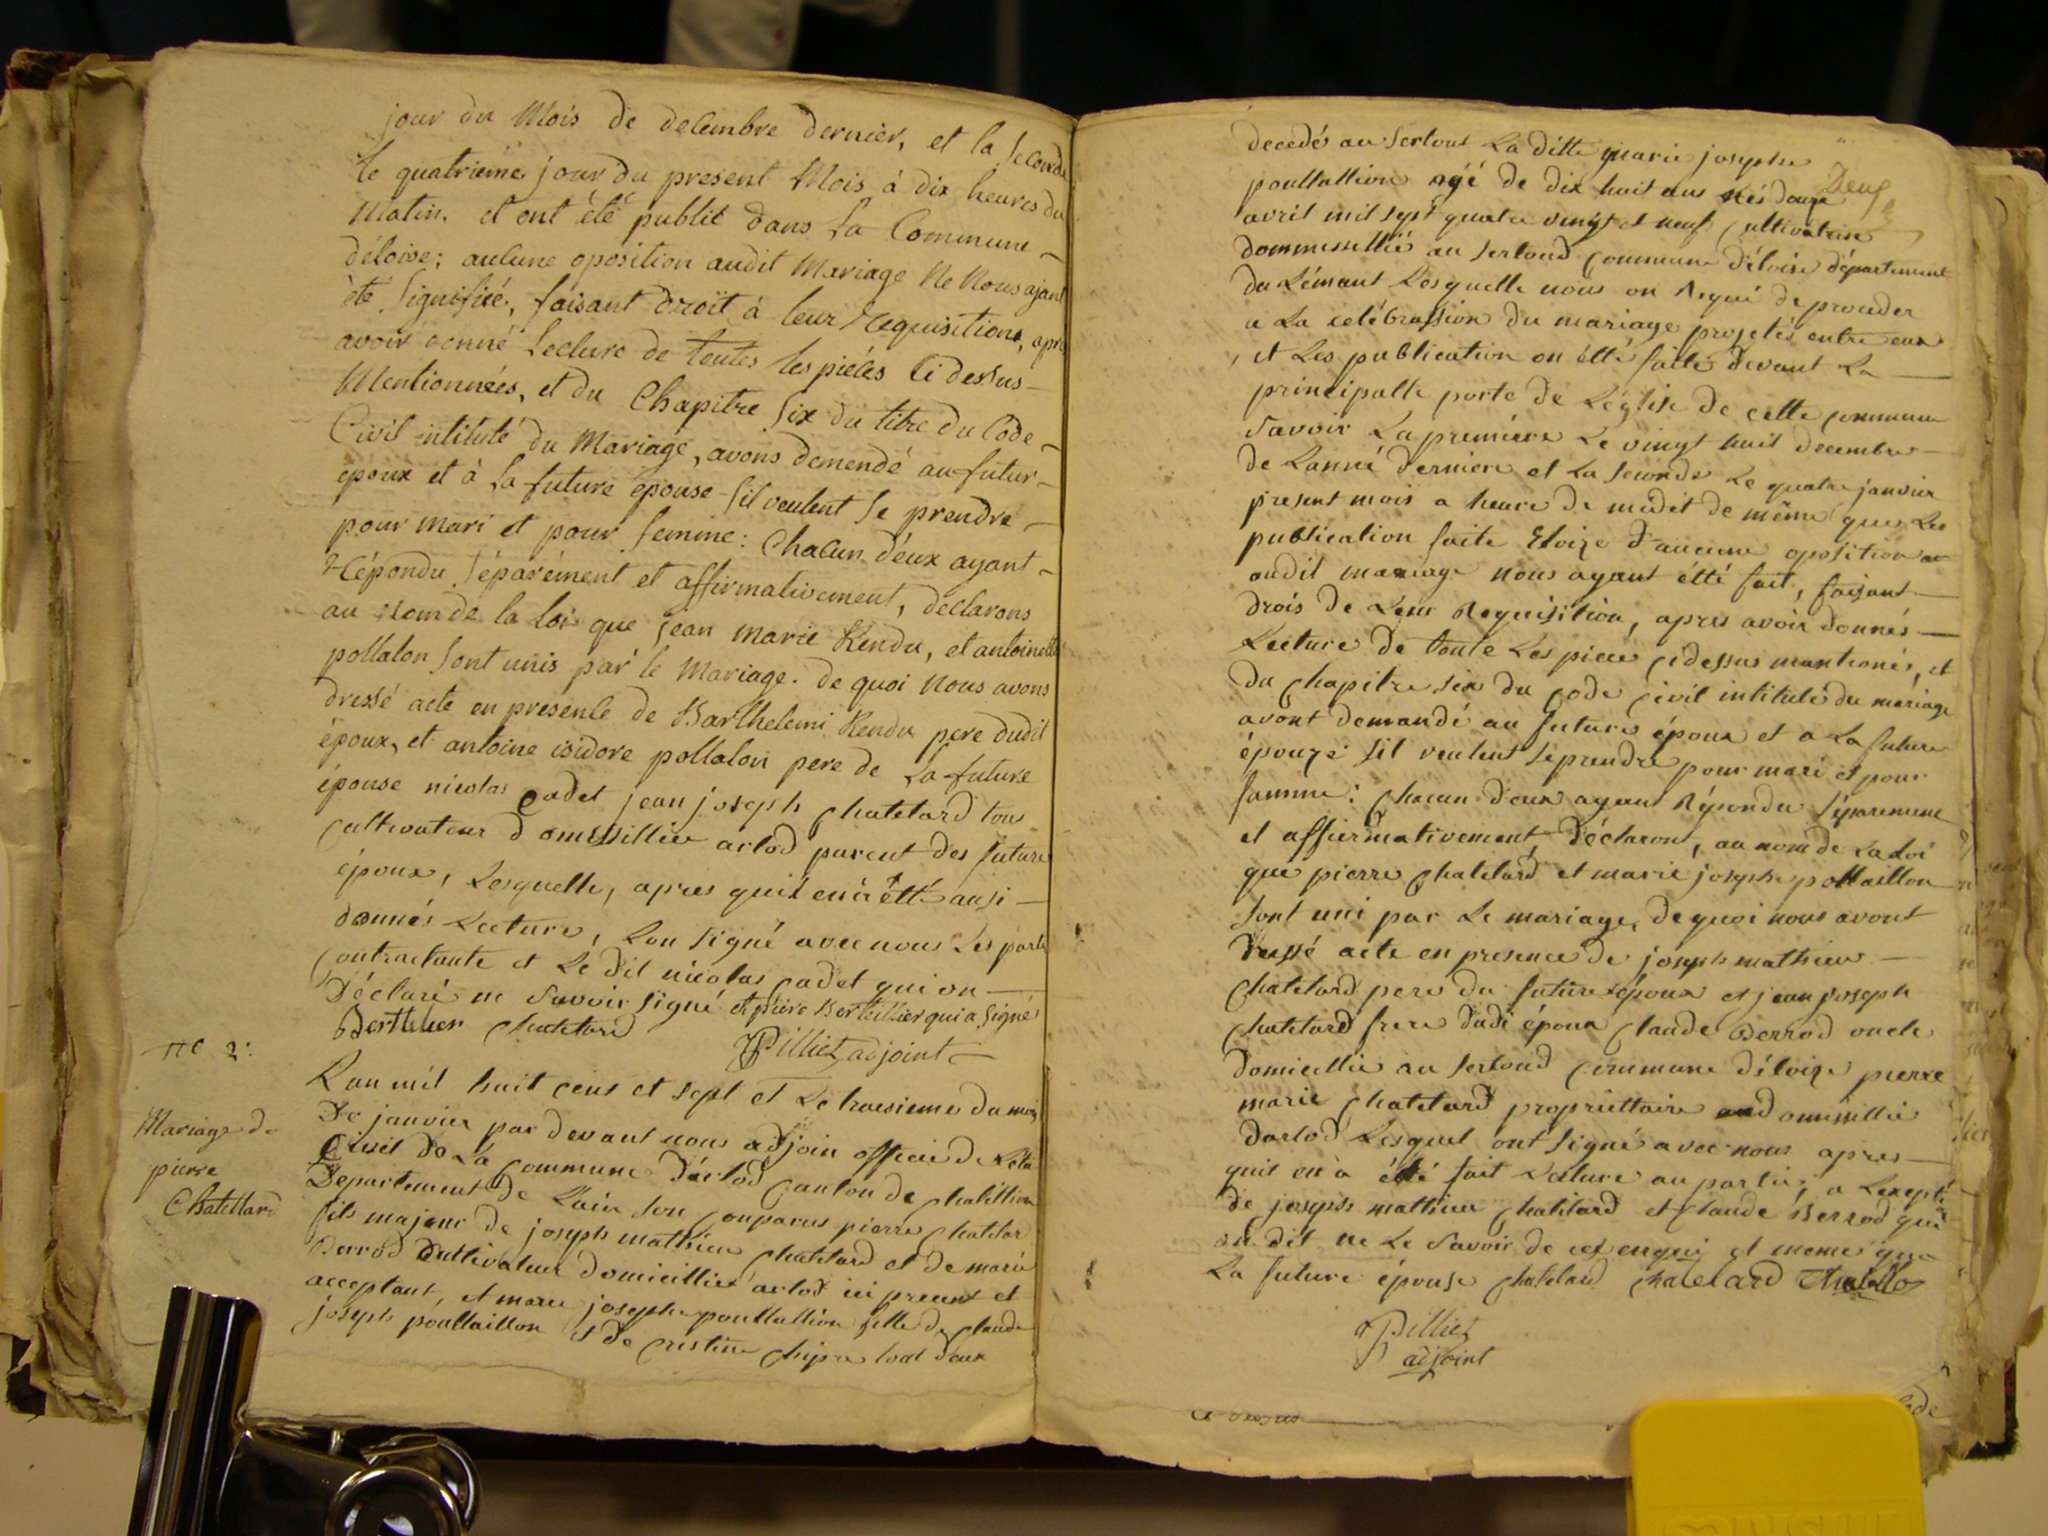 jour du Mois de decembre dernier, et la seconde
le quatrieme jour du present Mois à dix heures du
Matin. et ont été publié dans la Commune
d'éloise; aucune oposition audit Mariage Ne Nous ayant
été signifiée, faisant droit à leur requisitions, apres
avoir donné lecture de toutes les piéces ci dessus
Mentionnées, et du Chapitre six du titre du Code
Civil intitulé du Mariage, avons demendé au futur
epoux et à la future épouse s'il veulent se prendre
pour mari et pour femme: Chacun d'éux ayant
répondu séparément et affirmativement, declarons
au nom de la loi que jean marie Rendu, et antoinette
pollalon sont unis par le Mariage. de quoi Nous avons
dressé acte en presence de Barthelemi Rendu pere dudit
époux, et antoine isidore pollalon pere de la future
épouse nicolas Cadet jean joseph Chatelard tous
Cultivateur domissillie arlod parent des future
époux, Lesquelle, apres quil en a étté ausi
donnés Lecture, Lon signé avec nous Les parti
Contractante et Le dit nicolas Cadet qui on
Déclaré ne Savoir signé et piere Berthillier qui a signé
Berthelier Chatelard
Pilliet adjoint
n° 2:
Mariage de
pierre
Chatellard
Lan mil huit cens et sept et Le troisieme du mois
De janvier par devant nous adjoin officie de Léta
Civil De La Commune Darlod Canton de Chatillion
Departement de Lain son Comparus pierre Chatelar
fils majeur de joseph mathieu Chatelard et de marie
Berrod Cultivateur domicillier arlod ici present et
acceptant, et marie josephe poullallion fille de Claude
joseph poullaillon et de Cristine tout deux
Deux
decedés au Sertout La ditte marie josephe
poullallion agé de dix huit ans nés douze
avril mil sept quatre vingt et neuf Cultivatrise
dommissillié au Sertoud Commune d'éloise département
du Lémant Lesquelle nous on Requi de proceder
a La celébrassion du mariage projetés entre eux
et Les publication on étté faite devant La
principalle porte de Léglise de cette Commune
Savoir La premiere Le vingt huit decembre
de Lanné derniere et La seconde Le quatre janvier
present mois a heure de midet de même que Les
publication faite Eloize d'aucune oposition au
audit mariage nous ayant étté fait, faisant
drois de Leur Requisition, apres avoir donnés
Lecture de toute Les piece cidessus mantionés, et
du Chapitre six du Code Civil intitulé du mariage
avont demandé au future époux et a La future
épouze sil veulent se prendre pour mari et pour
famme: Chacun deux ayant Répondu séparement
et affiermativement, Déclaront, au nom de La Loi
que pierre Chatelard et marie josephe pollaillon
sont uni par Le mariage, de quoi nous avont
dressé acte en presence de joseph mathieu
Chatelard pere du future époux et jean joseph
Chatelard frere dudi époux Claude Berrod oncle
domicillie au Sertoud Commune d'éloize pierre
marie Chatelard propriettaire domissillie
darlod Lesquel ont signé avec nous apres
quil en a étté fait Lecture au partie, a Lexepté
de joseph mathieu Chatelard et Claude Berrod qui
on dit ne Le savoir de cet enqui et meme que
La future épouse Chatelard Chatelard
Pilliet
adjoint